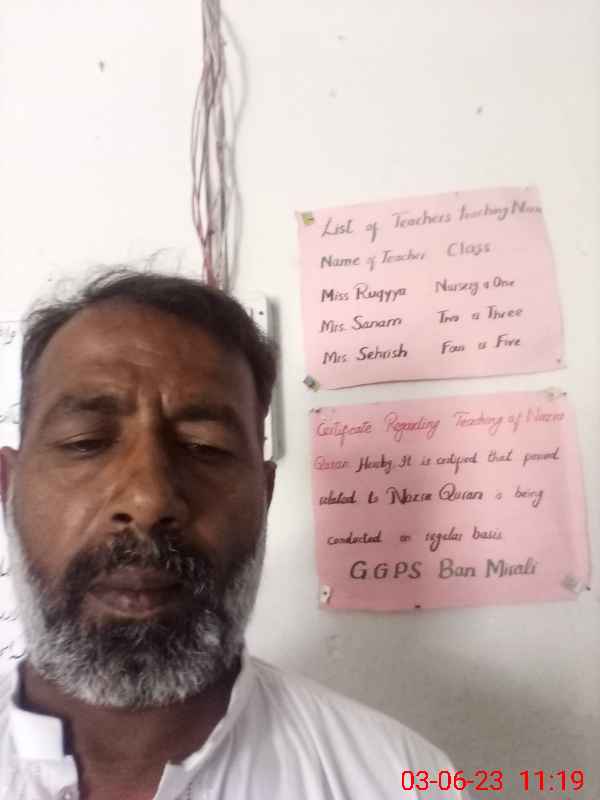 List of Teachers teaching
Name of Teacher Class
Miss Ruqyya Nursery & One
Mrs. Sanam Two & Three
Mrs Sehrish Four & Five
Certificate Regarding Teaching of Nazra
Quran. It is certified that period
related to Nazra Quran is being
conducted on regular basis
GGPS Ban Mirali
03-06-23 11:19